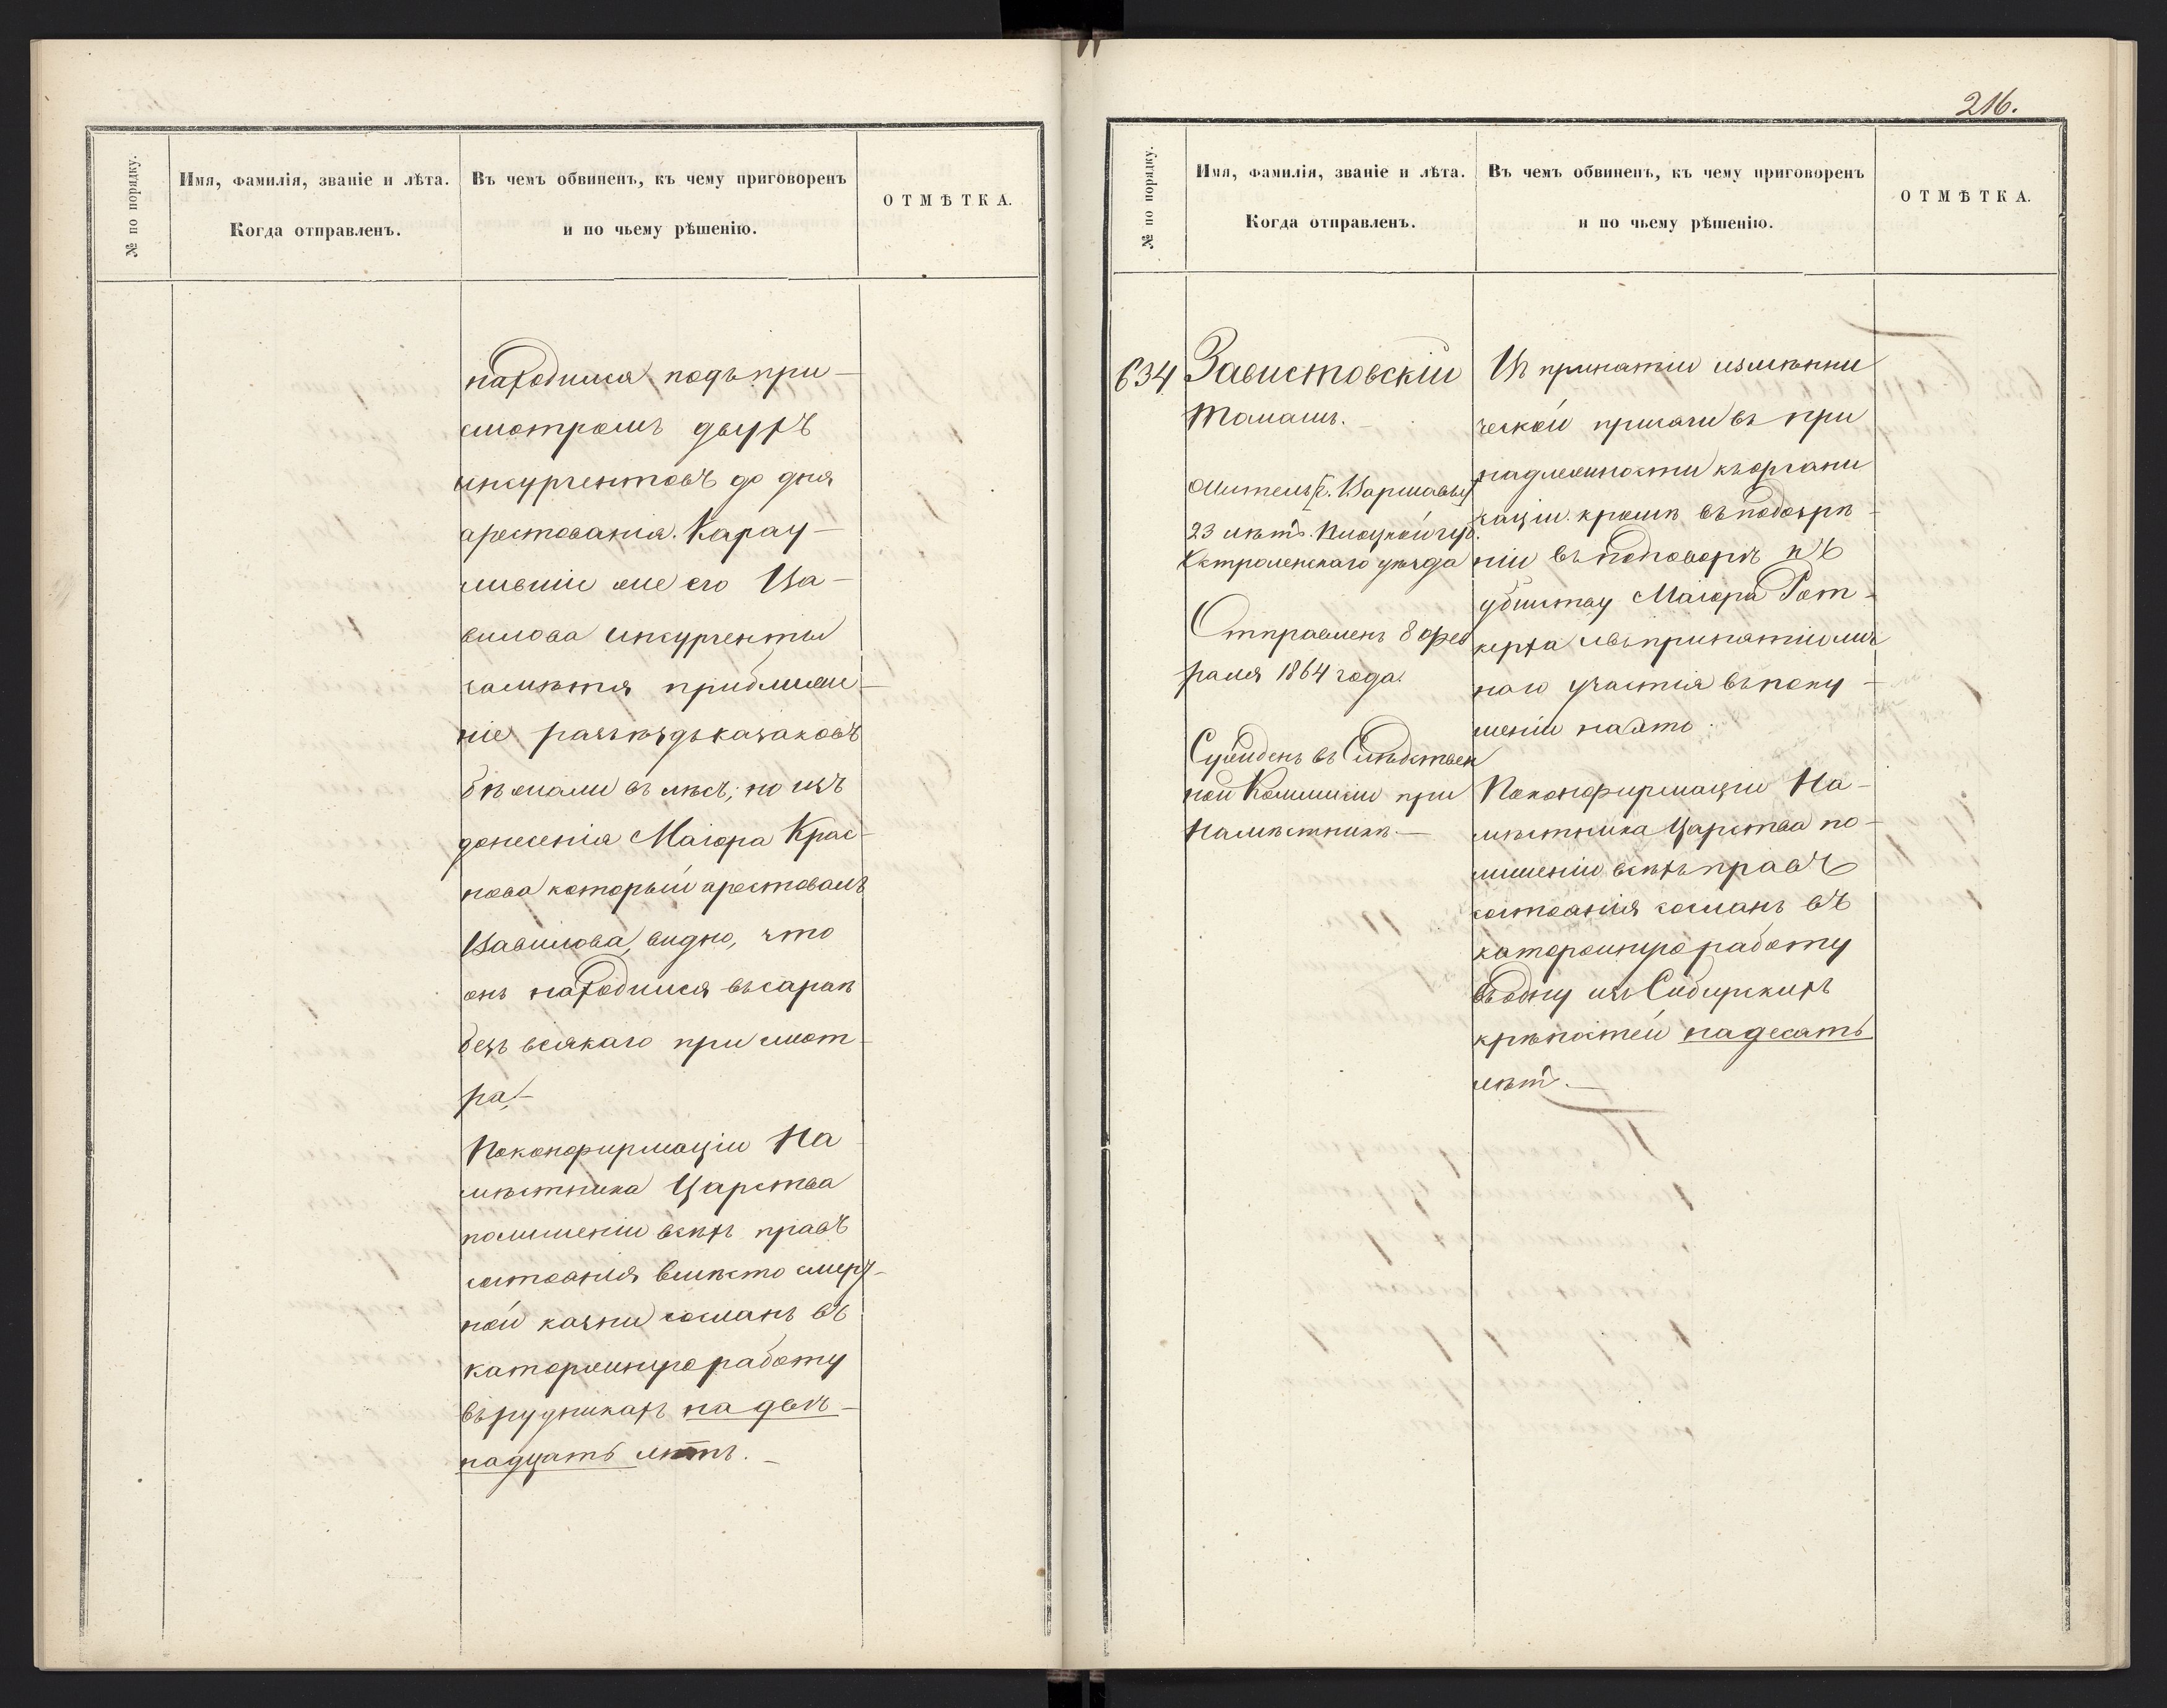 № по порядку.
Имя, фамилія, званіе и лѣта.
Когда отправленъ.
Въ чемъ обвиненъ, къ чему приговоренъ
и по чьему рѣшенію.
ОТМѢТКА.
находился подъ при-
смотромъ двухъ
инсургентовъ до дня
арестованія. Карау-
лившіе же его Ва-
вилова инсургенты
замѣтя приближе-
ніе разъѣзда казаковъ
бѣжали въ лѣсъ; но изъ
донесенія Маіора Крас-
нова который арестовалъ
Вавилова, видно, что
онъ находился въ сараѣ
безъ всякаго присмот-
ра.-
По конфирмаціи На
мѣстника Царства
по лишеніи всѣхъ правъ
состоянія вмѣсто смерт-
ной казни сосланъ въ
каторжную работу
въ рудникахъ на двѣ-
надцать лѣтъ.-
216.
№ по порядку.
Имя, фамилія, званіе и лѣта.
Когда отправленъ.
Въ чемъ обвиненъ, къ чему приговоренъ
и по чьему рѣшенію.
ОТМѢТКА.
634
Завистовскій
Томашъ.
Житель г. Варшавы
23 лѣтъ. Плоцкой губ.
Остроленскаго уѣзда
Отправленъ 8 фев
раля 1864 года.
Сужденъ въ Слѣдствен
ной Коммисіи при
Намѣстникѣ.-
Въ принятіи измѣнни
ческой присяги въ при
надлежности къ органи
заціи кромѣ въ подозрѣ-
ніи въ подговорѣ къ
убійству Маіора Рот-
кирха и въ принятіи лич
наго участія въ поку-
шеніи на это.
По конфирмаціи На-
мѣстника Царства по-
лишеніи всѣхъ правъ
состоянія сосланъ въ
каторжную работу
въ одну изъ Сибирскихъ
крѣпостей на десять
лѣтъ.-